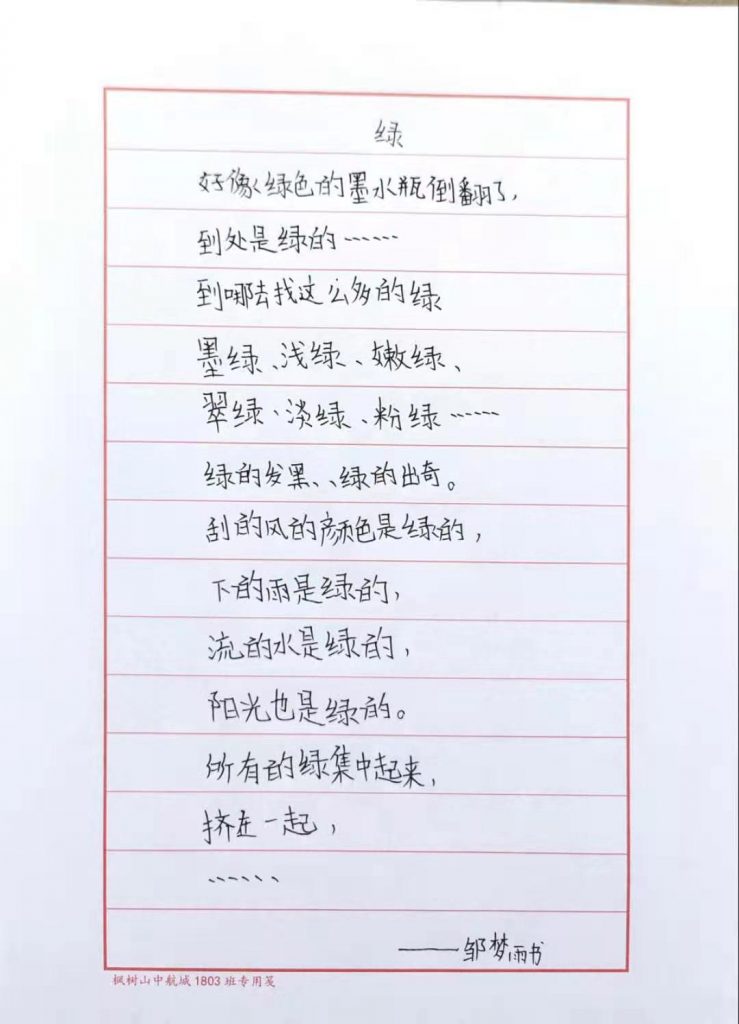 绿
好像绿色的墨水瓶倒翻了,
到处是绿的……
到哪去找这么多的绿
墨绿、浅绿、嫩绿、
翠绿、淡绿、粉绿……
绿的发黑、、绿的出奇。
刮的风的颜色是绿的,
下的雨是绿的,
流的水是绿的,
阳光也是绿的。
所有的绿集中起来,
挤在一起,
……
——邹梦雨书
枫树山中航城1803班专用笺